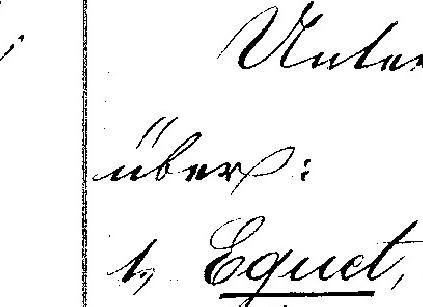 Unter
über:
1, Equet,